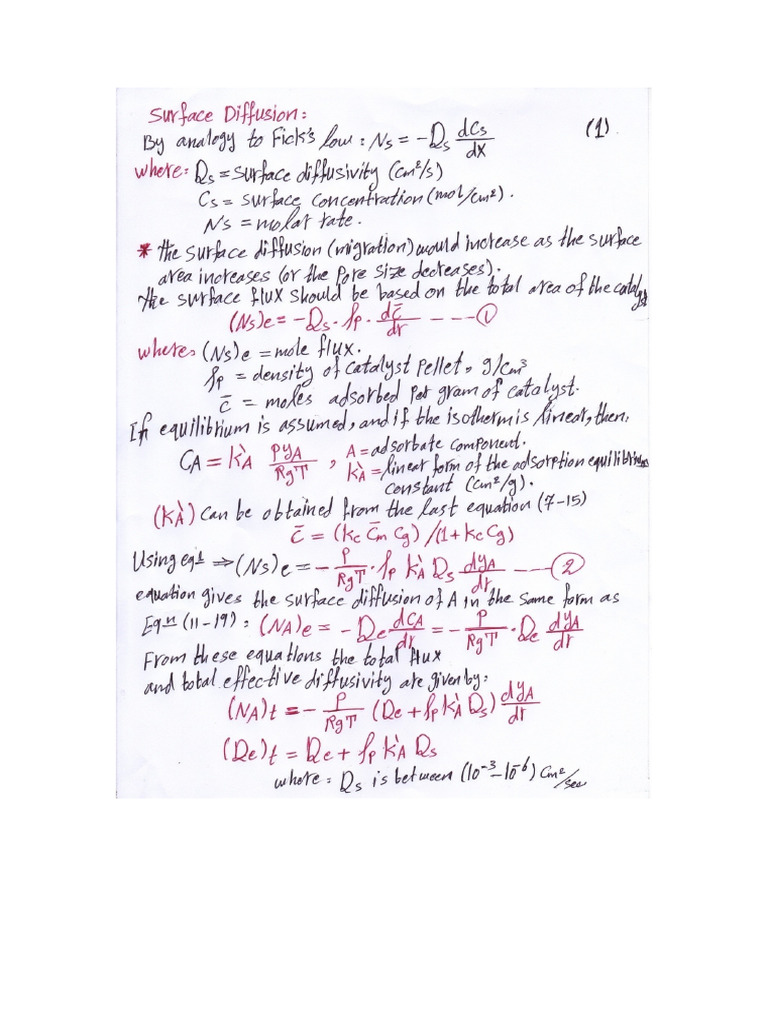 Surface Diffusion:
By analogy to Fick's low : Ns = -Ds dCs/dx (1)
where: Ds = surface diffusivity (cm²/s)
Cs = surface concentration (mol/cm²).
Ns = molar rate.
* the surface diffusion (migration) would increase as the surface
area increases (or the pore size decreases).
the surface flux should be based on the total area of the catalyst
(Ns)e = -Ds . ρp . dc̄/dr ---- ①
where: (Ns)e = mole flux.
ρp = density of catalyst pellet, g/cm³
c̄ = moles adsorbed per gram of catalyst.
If equilibrium is assumed, and if the isotherm is linear, then:
CA = K'A PyA/RgT , A = adsorbate component.
K'A = linear form of the adsorption equilibrium
constant (cm³/g).
(K'A) can be obtained from the last equation (7-15)
c̄ = (Kc C̄m Cg) / (1 + Kc Cg)
Using eq 1 ⇒ (Ns)e = - P/RgT . ρp K'A Ds dyA/dr ---- ②
equation gives the surface diffusion of A in the same form as
Eqn (11-19) : (NA)e = - De dCA/dr = - P/RgT . De dyA/dr
From these equations the total flux
and total effective diffusivity are given by:
(NA)t = - P/RgT (De + ρp K'A Ds) dyA/dr
(De)t = De + ρp K'A Ds
where: Ds is between (10⁻³ - 10⁻⁶) cm²/sec